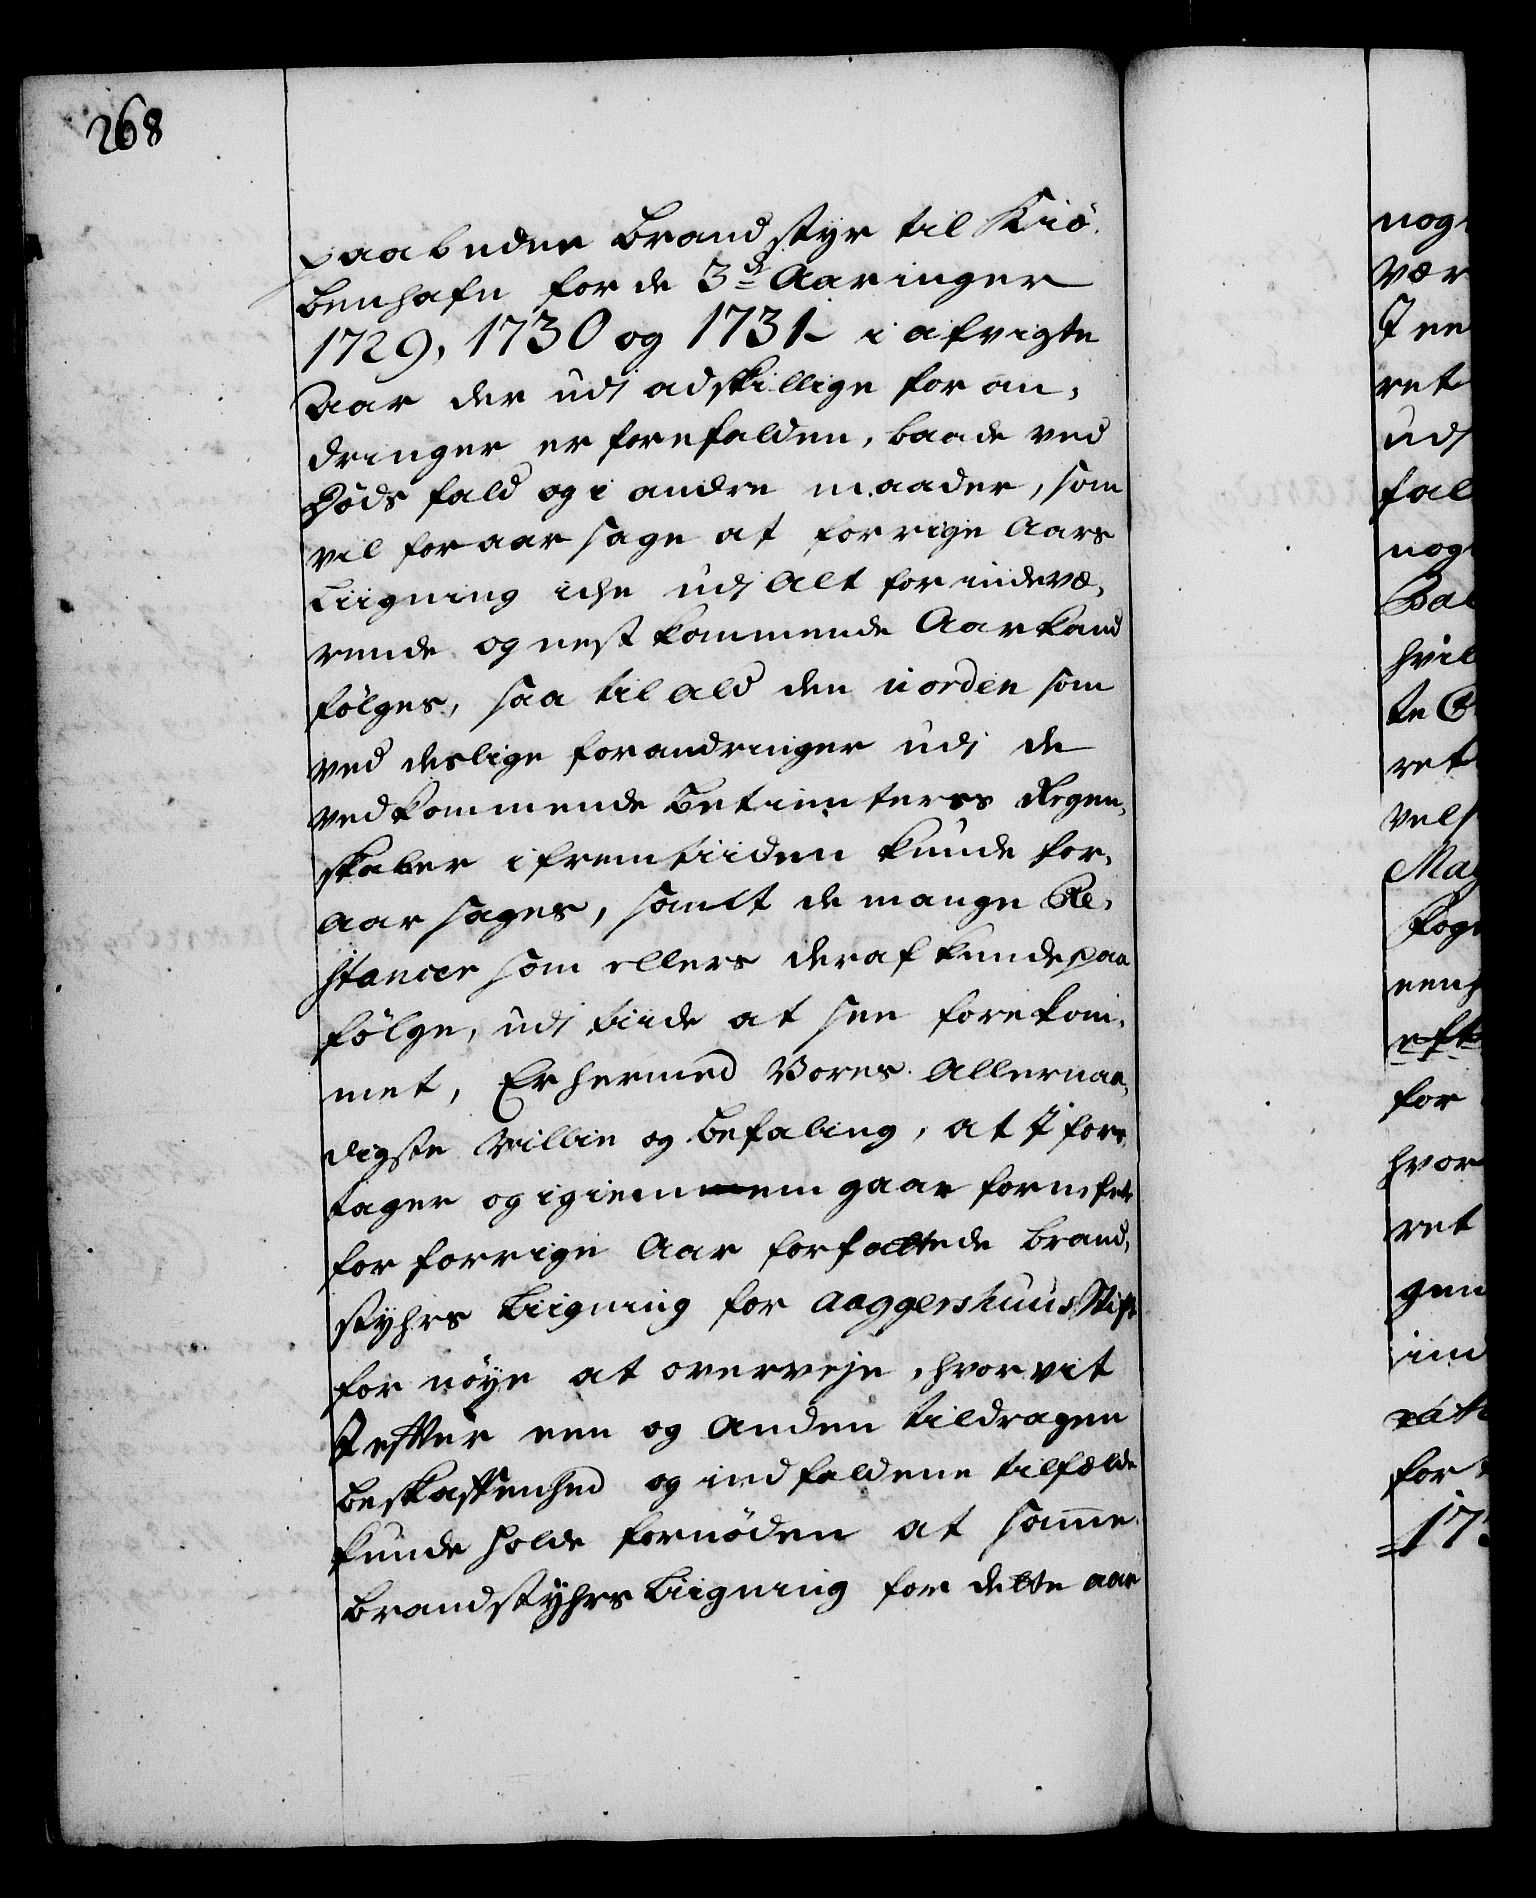 268
paabuden Brandstyr til Kiö,
benhafn for de 3de Aaringer
1729, 1730 og 1731 i afvigte
Aar der udj adskillige foran,
dringer er forefalden, baade ved
Döds fald og i andre maader, som
vil foraarsage at forrige Aars
Liigning iche udj alt for indevæ,
rende og nestkommende Aar kand
fölges, saa til ald den uorden som
ved deslige forandringer udj de
vedkommende Betienteres Regen,
skaber i fremtiiden kunde for,
aarsages, samt de mange Re,
stancer som ellers deraf kunde paa
fölge, udj tiide at see forekom,
met, Er hermed Vores Allernaa,
digste Villie og befaling, at I fore,
tager og igiennem gaar fornefnte
for forrige Aar forfattede brand,
styhrs Liigning for Aaggershuus Stift
for nöye at overveje, hvorvit
I efter een og anden tildragen
beskaffenhed og indfaldene tilfælde
kunde holde fornöden at samme
Brandstyhrs Liigning for dette aar
nog
vær
I ee
ret
udj
fal
nog
Bal
hvil
te
ret
vel
May
fog
eens
eft
for
hvor
ret
gen
ind
for
173